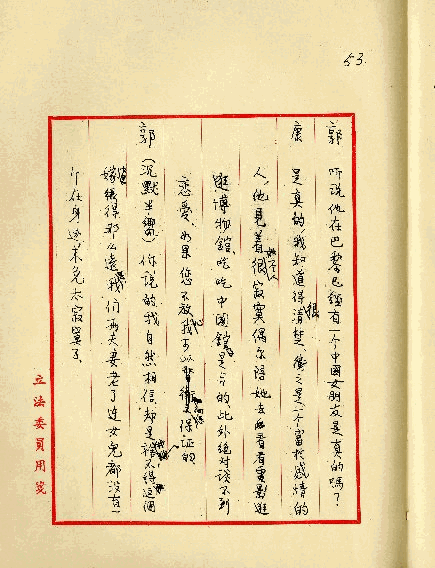 53.
郭 听說他在巴黎已經有一个中國女朋友是真的嗎？
康 是真的，我知道得很清楚，衛之是一个富於感情的
人，他見着她很寂寞偶尔陪她去看看電影逛
逛博物館，吃吃中國館是有的，此外絕对談不到
恋爱，如果您不放心我可以替衛之保証的
郭 （沉默）你說的我自然相信，却是捨不得這個
嫁得那么遠，我们两夫妻老了連女兒都沒有一
个在身边未免太寂寞了
立法委員用箋